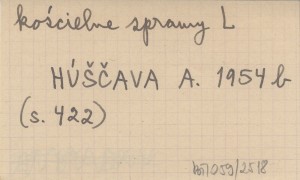 kościelne sprawy L
HÚŠČAVA A. 1954 b
(s. 422)
/059/2518